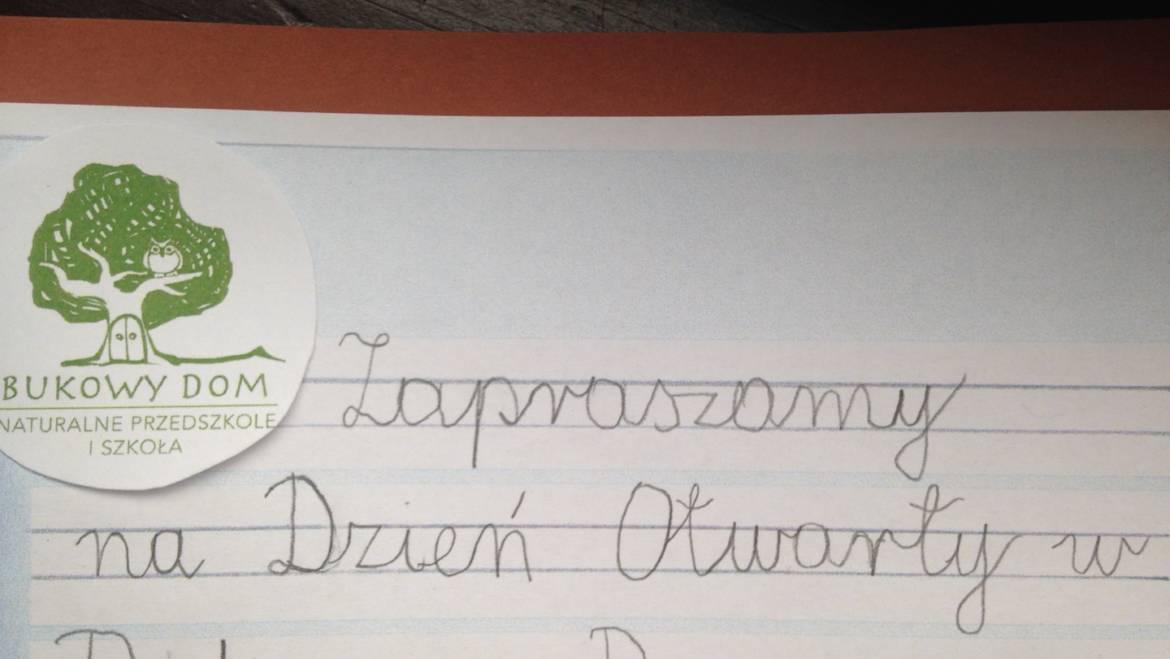 BUKOWY DOM
NATURALNE PRZEDSZKOLE
I SZKOŁA
Zapraszamy
na Dzień Otwarty w